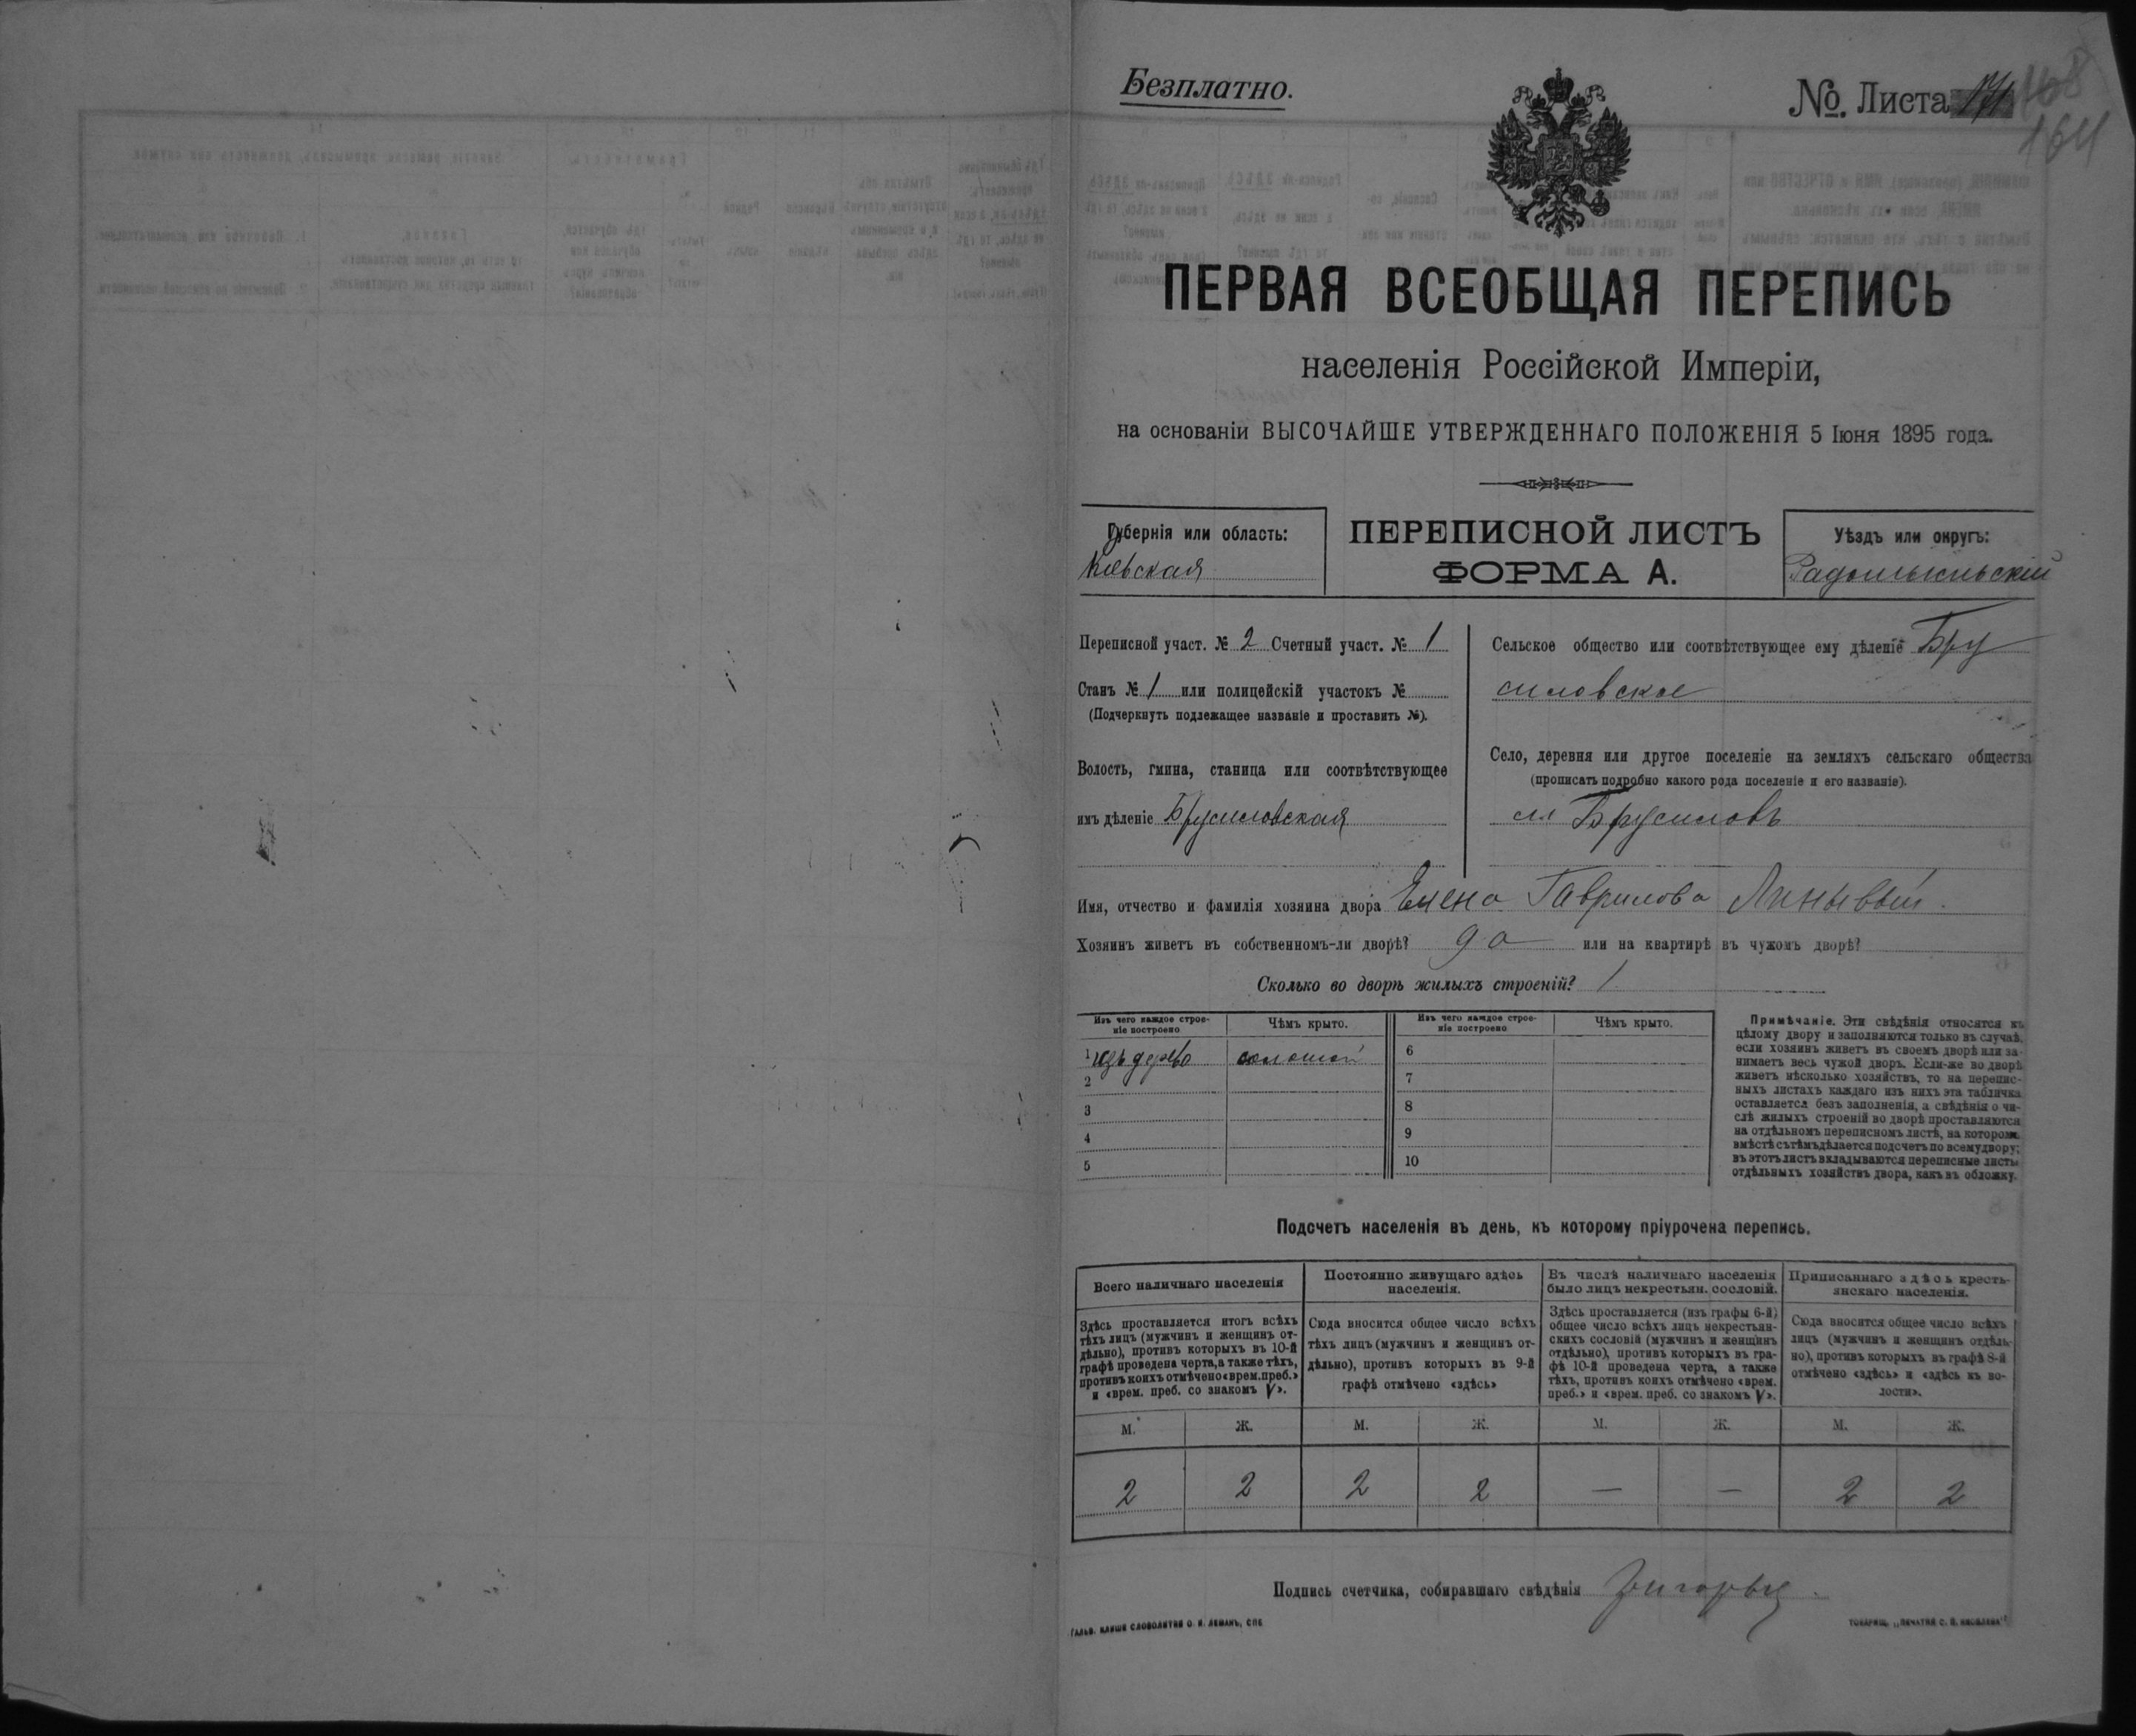 Безплатно.
№. Листа
164
ПЕРВАЯ ВСЕОБЩАЯ ПЕРЕПИСЬ
населенія Россійской Имперіи,
на основаніи ВЫСОЧАЙШЕ УТВЕРЖДЕННАГО ПОЛОЖЕНІЯ 5 Іюня 1895 года.
Губернія или область:
Кіевская
ПЕРЕПИСНОЙ ЛИСТЪ
ФОРМА А.
Уѣздъ или округъ:
Радомысльскій
Переписной участ. № 2 Счетный участ. № 1
Станъ № 1 или полицейскій участокъ №
(Подчеркнуть подлежащее названіе и проставить №).
Волость, гмина, станица или соотвѣтствующее
имъ дѣленіе Брусиловская
Сельское общество или соотвѣтствующее ему дѣленіе Бру
силовское
Село, деревня или другое поселеніе на земляхъ сельскаго общества
(прописать подробно какого рода поселеніе и его названіе).
м Брусиловъ
Имя, отчество и фамилія хозяина двора Елена Гаврилова
Хозяинъ живетъ въ собственномъ-ли дворѣ? да или на квартирѣ въ чужомъ дворѣ?
Сколько во дворѣ жилыхъ строеній? 1
Изъ чего каждое строе-
ніе построено
Чѣмъ крыто.
Изъ чего каждое строе-
ніе построено
Чѣмъ крыто.
1 изъ дерева соломой 6
2 7
3 8
4 9
5 10
Примѣчаніе. Эти свѣдѣнія относятся къ
цѣлому двору и заполняются только въ случаѣ,
если хозяинъ живетъ въ своемъ дворѣ или за-
нимаетъ весь чужой дворъ. Если-же во дворѣ
живетъ нѣсколько хозяйствъ, то на перепис-
ныхъ листахъ каждаго изъ нихъ эта табличка
оставляется безъ заполненія, а свѣдѣнія о чи-
слѣ жилыхъ строеній во дворѣ проставляются
на отдѣльномъ переписномъ листѣ, на которомъ
вмѣстѣ съ тѣмъ дѣлается подсчетъ по всему двору;
въ этотъ листъ вкладываются переписные листы
отдѣльныхъ хозяйствъ двора, какъ въ обложку.
Подсчетъ населенія въ день, къ которому пріурочена перепись.
Всего наличнаго населенія
Постоянно живущаго здѣсь
населенія.
Въ числѣ наличнаго населенія
было лицъ некрестьян. сословій.
Приписаннаго здѣсь кресть-
янскаго населенія.
Здѣсь проставляется итогъ всѣхъ
тѣхъ лицъ (мужчинъ и женщинъ от-
дѣльно), противъ которыхъ въ 10-й
графѣ проведена черта, а также тѣхъ,
противъ коихъ отмѣчено «врем. преб.»
и «врем. преб. со знакомъ V».
Сюда вносится общее число всѣхъ
тѣхъ лицъ (мужчинъ и женщинъ от-
дѣльно), противъ которыхъ въ 9-й
графѣ отмѣчено «здѣсь»
Здѣсь проставляется (изъ графы 6-й)
общее число всѣхъ лицъ некрестьян-
скихъ сословій (мужчинъ и женщинъ
отдѣльно), противъ которыхъ въ гра-
фѣ 10-й проведена черта, а также
тѣхъ, противъ коихъ отмѣчено «врем.
преб.» и «врем. преб. со знакомъ V».
Сюда вносится общее число всѣхъ
лицъ (мужчинъ и женщинъ отдѣль-
но), противъ которыхъ въ графѣ 8-й
отмѣчено «здѣсь» и «здѣсь въ во-
лости».
М. Ж. М. Ж. М. Ж. М. Ж.
2 2 2 2 — — 2 2
Подпись счетчика, собиравшаго свѣдѣнія
ГАЛЬВ. КЛИШЕ СЛОВОЛИТНИ О. И. ЛЕМАНЪ, СПБ
ТОВАРИЩ. „ПЕЧАТНЯ С. П. ЯКОВЛЕВА"